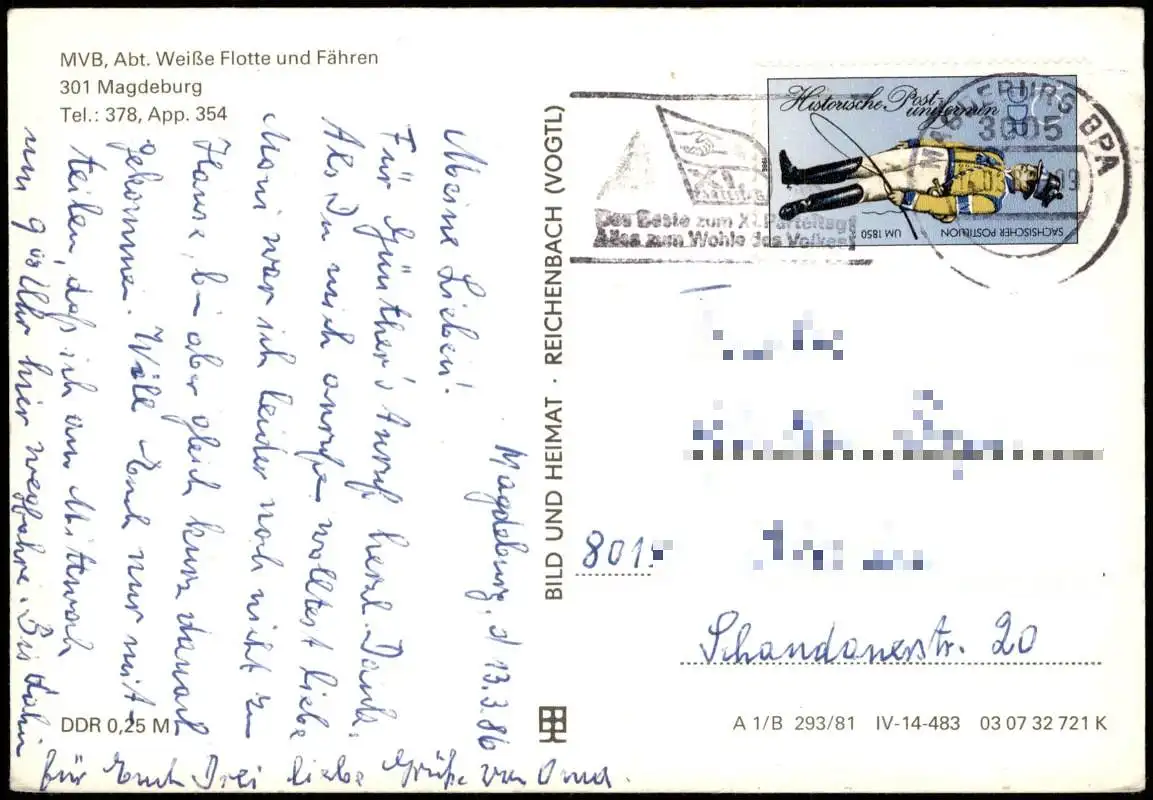 MVB, Abt. Weiße Flotte und Fähren
301 Magdeburg
Tel.: 378, App. 354
Magdeburg, d 13.3.86
Meine Lieben!
Für Günther's Anruf herzl. Dank.
Als Du mich anrufen wolltest liebe
Moni war ich leider noch nicht zu
Hause, bin aber gleich kurz danach
gekommen. Will Euch nur mit-
teilen, daß ich am Mittwoch
um 9 Uhr hier wegfahre. Bis dahin
für Euch Drei liebe Grüße von Oma.
DDR 0,25 M
BILD UND HEIMAT · REICHENBACH (VOGTL)
Historische Post-
uniformen
SÄCHSISCHER POSTILLION
UM 1850
MAGDEBURG BPA
3005
XI.
PARTEITAG
Das Beste zum XI. Parteitag!
Alles zum Wohle des Volkes!
801
Schandauerstr. 20
A 1/B 293/81 IV-14-483 03 07 32 721 K